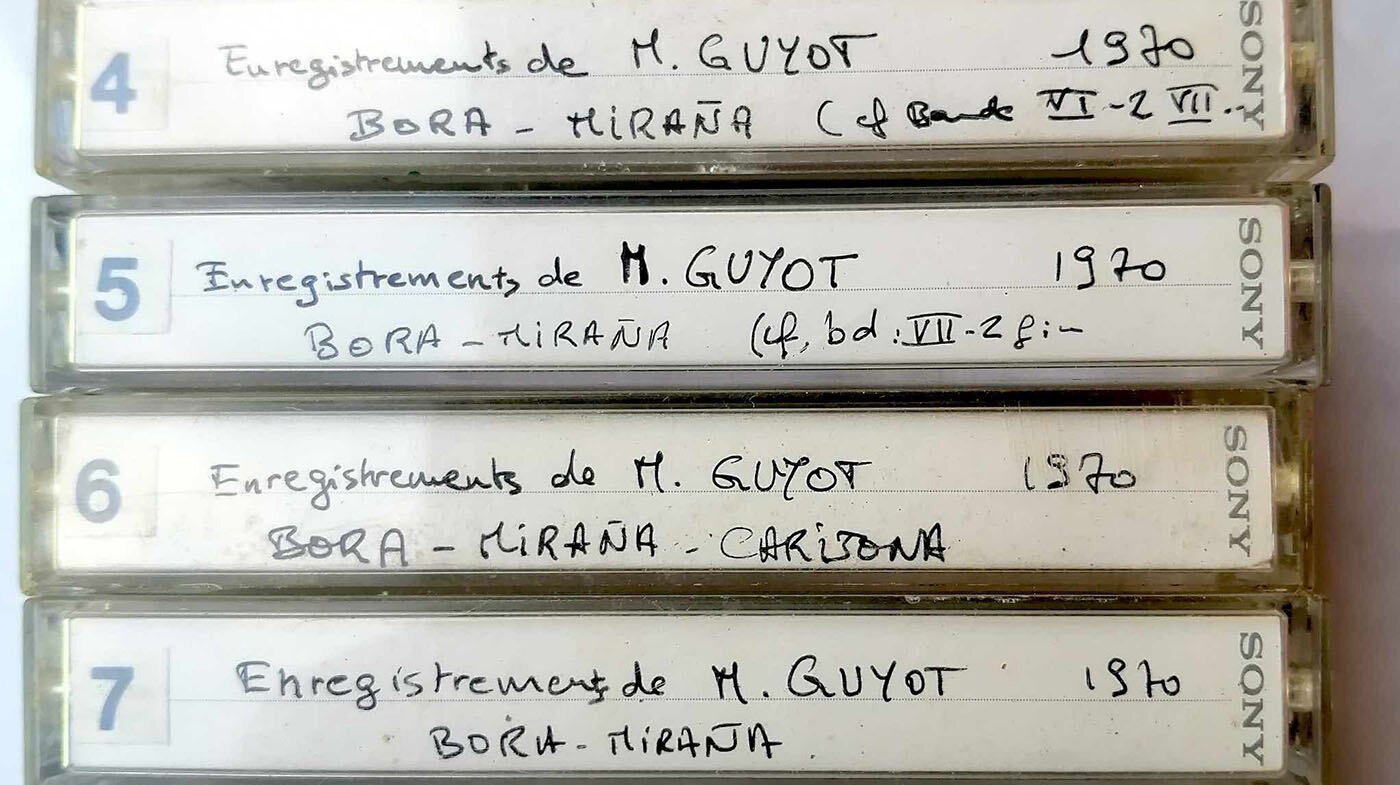 4
Enregistrements de M. GUYOT 1970
BORA - MIRAÑA (cf Bande VI-2 VII.
SONY
5
Enregistrements de M. GUYOT 1970
BORA - MIRAÑA (cf, bd: VII-2
SONY
6
Enregistrements de M. GUYOT 1970
BORA - MIRAÑA - CARIJONA
SONY
7
Enregistrements de M. GUYOT 1970
BORA - MIRAÑA
SONY